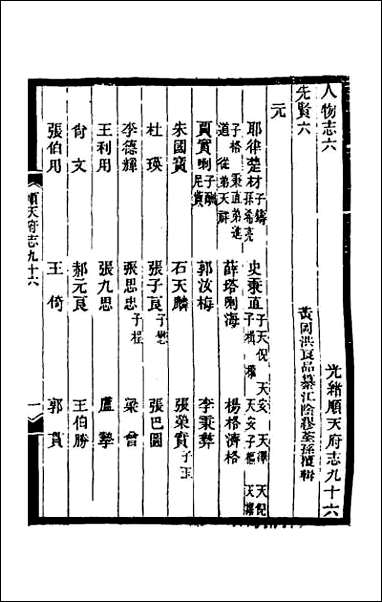 人物志六 光緒順天府志九十六
先賢六 黃岡洪良品纂江陰繆荃孫覆輯
元
耶律楚材子鑄 孫希亮 史秉直子天倪 天安 天澤 天倪
子格 秉直弟進 子楫 權 天安子樞
道 從弟天祥 薛塔剌海 楊格濟格
賈實喇子 尼實 郭汝梅 李秉彝
朱國寶 石天麟 張榮實子玉
杜瑛 張子良子懋 張巴圖
李德輝 張思忠子 梁曾
王利用 張九思 盧摯
尚文 郝元良 王伯勝
張伯用 王倚 郭貫
順天府志九十六 一